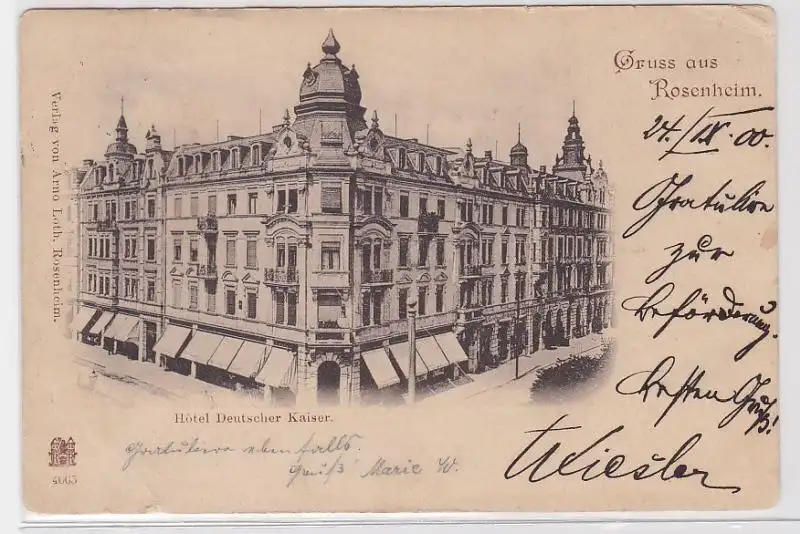 Gruss aus
Rosenheim.
24./IX. 00.
Gratuliere
zur
Beförderung.
besten Gruß!
Wiesler
Verlag von Arno Loth, Rosenheim.
Hôtel Deutscher Kaiser.
Gratuliere ebenfalls.
Gruß Marie W.
4065